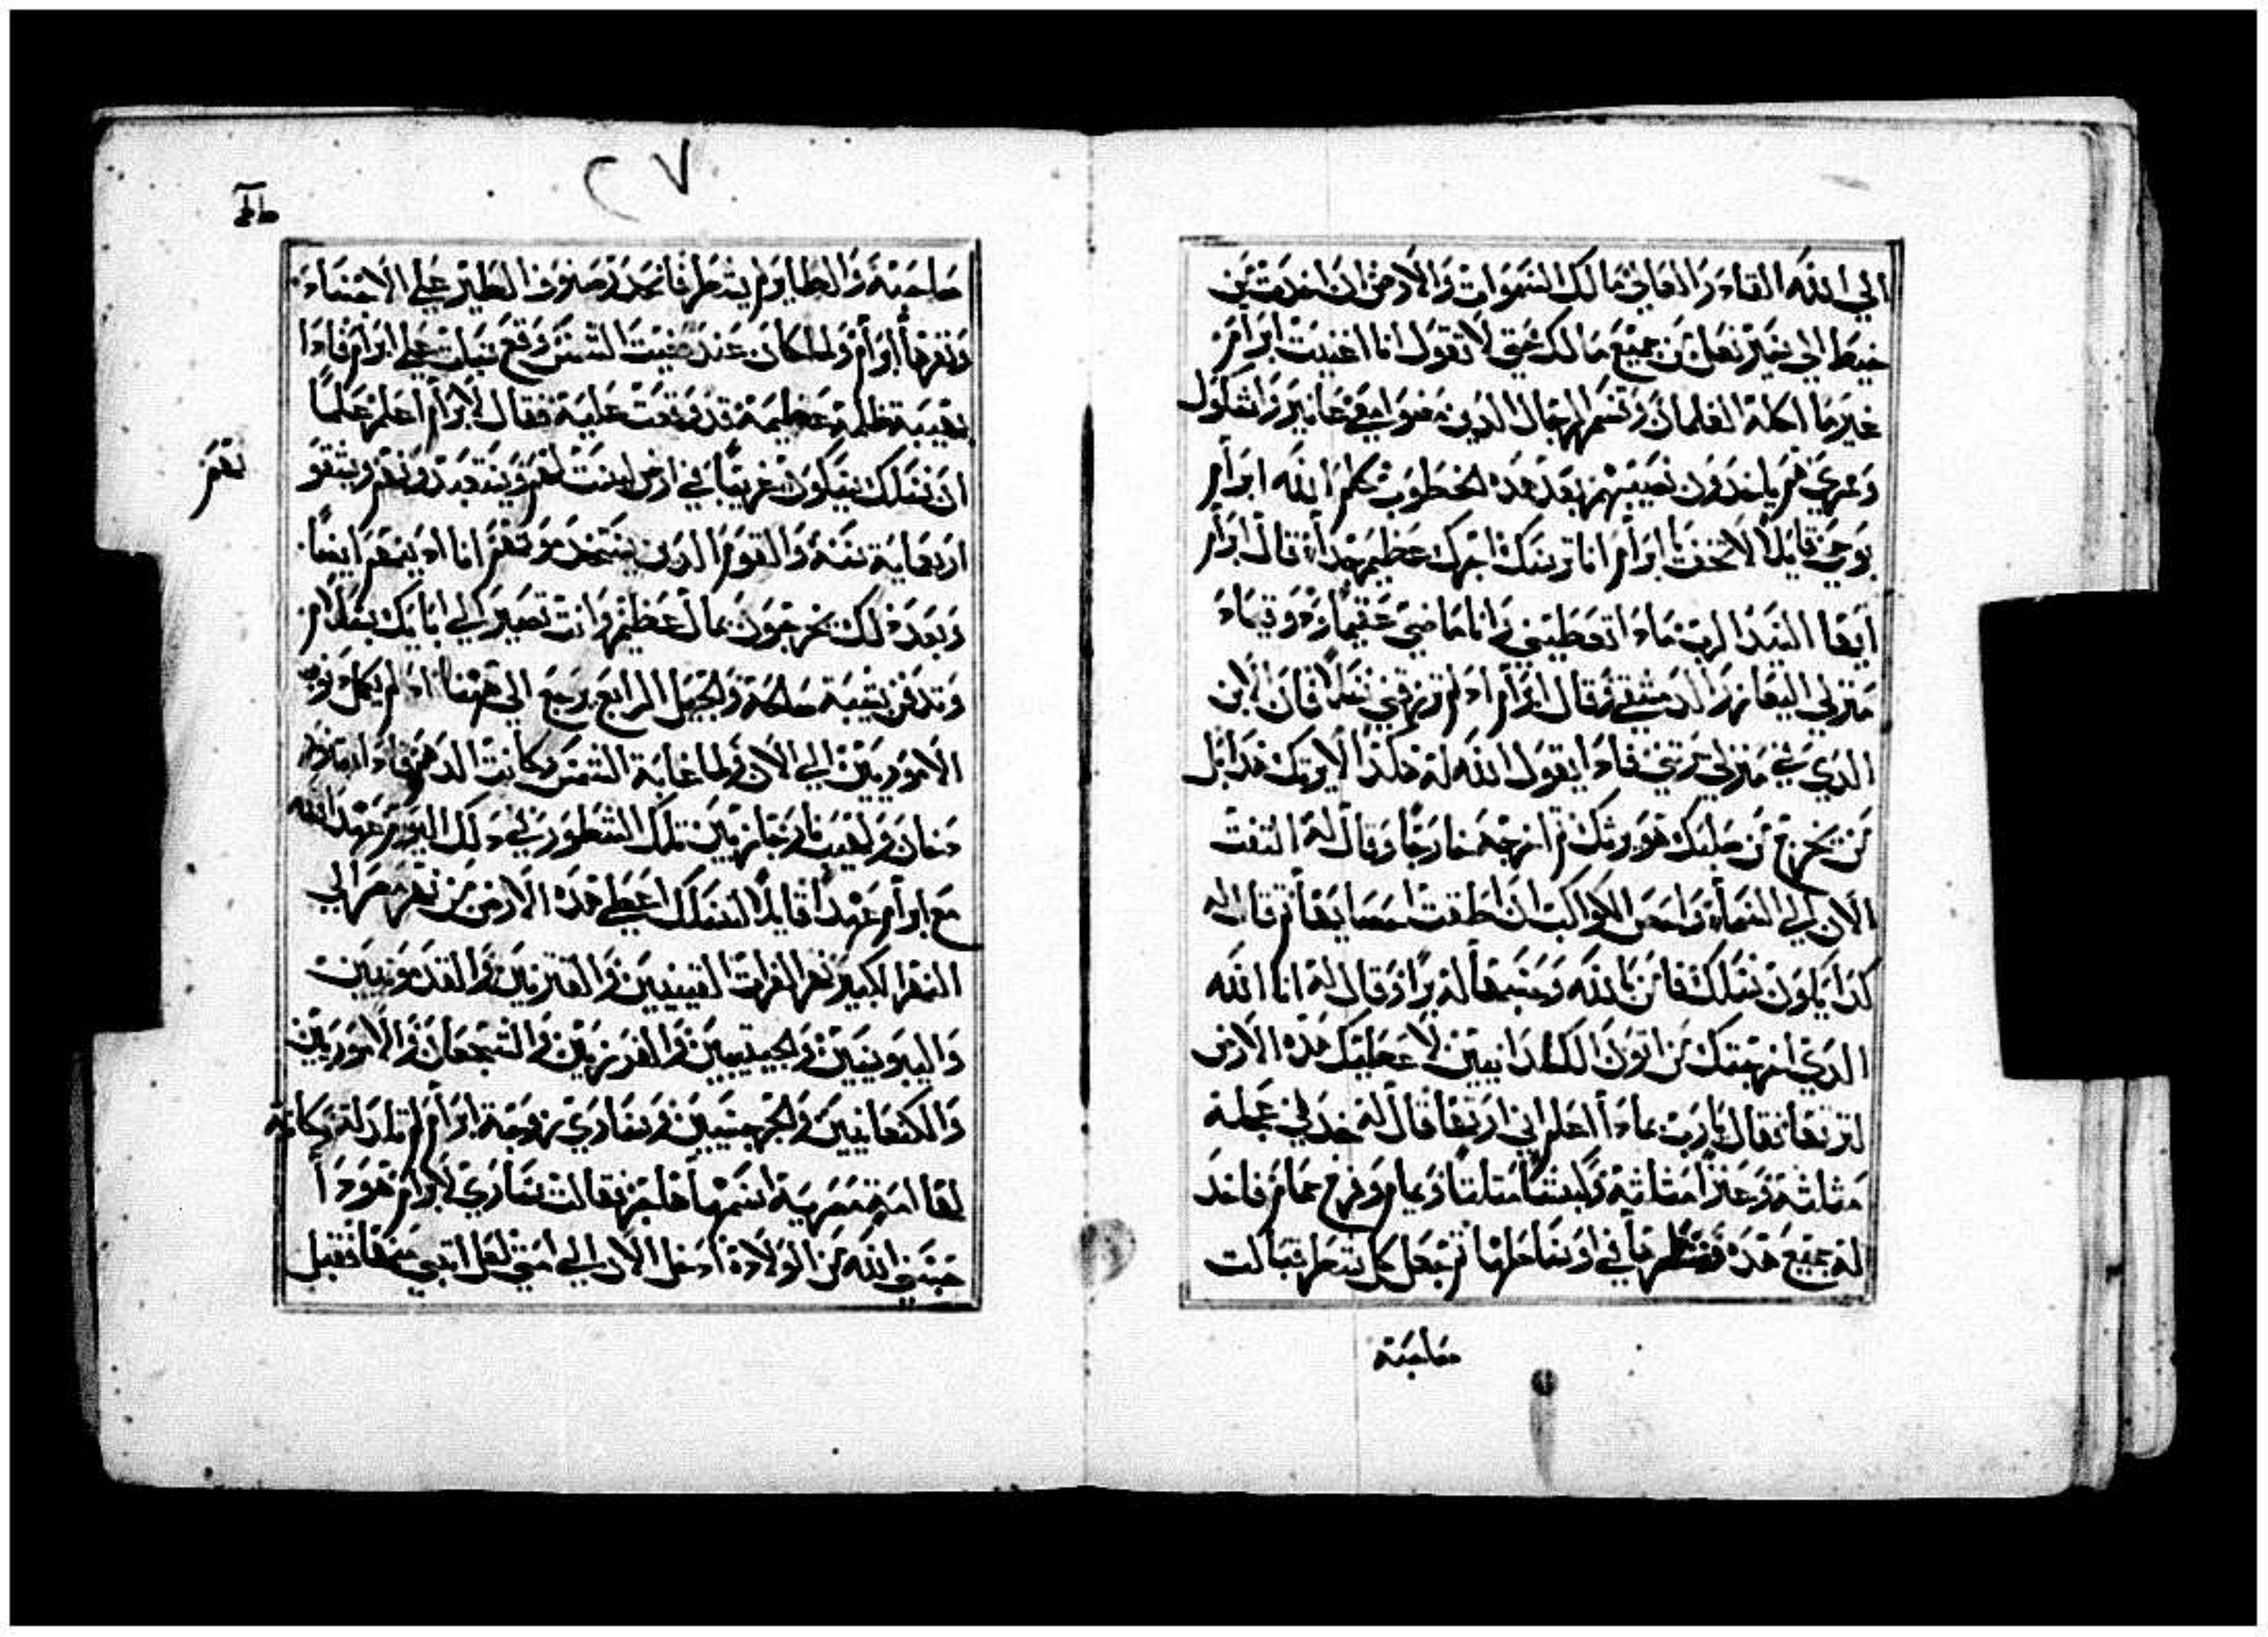 الي الله القادر العالي مالك السموات والارض ان اخدت من
خيط الي شير نعل من جميع مالك حتي لا تقول انا اغنيت ابرام
غير ما اكله الغلمان وقسم الرجال الدين مضوا معي عانير واشكول
وممري هم ياخدون نصيبهم بعد هده الخطوب كلم الله ابرام
بوحي قايلا لا تخف ابرام انا ترسك اجرك عظيم جدا قال ابرام
ايها السيد الرب مادا تعطيني وانا ماضي عقيما ودو قيما
منزلي اليعازر الدمشقي وقال ابرام اد لم ترزقني نسلا فان الابن
الدي في منزلي يرتني فادا بقول الله له هكدا لا يرتك هدا بل
من يخرج من صلبك هو يرتك تم اخرجه خارجا وقال له التفت
الان الي السماء واحص الكواكب ان اطقت احصايها تم قال له
كدا يكون نسلك فامن بالله وحسبها له برا وقال له انا الله
الدي اخرجتك من اتون الكلدانيين لاعطيك هده الارض
لترتها فقال يارب بمادا اعلم اني ارتها قال له خد لي عجله
متلته وعنزا متلته وكبشا متلتا ويمام وفرخ حمام فاخد
له جميع هده وشطرها في اوساطها تم جعل كل شطر قبالت
صاحبه
٢٧
صاحبه والطاير لم يشطر فانحدر صنوف الطير علي الاجساد
ونفرها ابرام ولما كان عند مغيب الشمس وقع سبات علي ابرام فادا
بهيبه ظلمه عظيمه قد وقعت عليه فقال لابرام اعلم علما
ان نسلك سيكون غريبا في ارض ليست لهم ويستعبدونهم ويشقو
نهم
اربعمايه سنه والقوم الدين يستخدمونهم انا ادينهم ايضا
وبعد دلك يخرجون بمال عظيم وانت تصير الي ابايك بسلام
وتدفن بشيبه صالحه والجيل الرابع يرجع الي ههنا اد لم يكمل دنوب
الاموريين الي الان ولما غابة الشمس وكانت الدهمه فادا بتنور
دخان ولهيب نار جاز بين تلك الشطور في دلك اليوم عهد الله
مع ابرام عهدا قايلا لنسلك اعطي هده الارض من نهر مصر الي
النهر الكبير نهر الفرات القينيين والقنزيين والقدمونيين
واليبوسيين والحيتيين والفرزيين والشجعان والاموريين
والكنعانيين والجرجسيين وساري زوجة ابرام لم تلد له وكانة
لها امه مصريه اسمها هاجر فقالت ساري لابرام هودا
حبسني الله عن الولاده ادخل الان الي امتي لعل ابتني منها فقبل